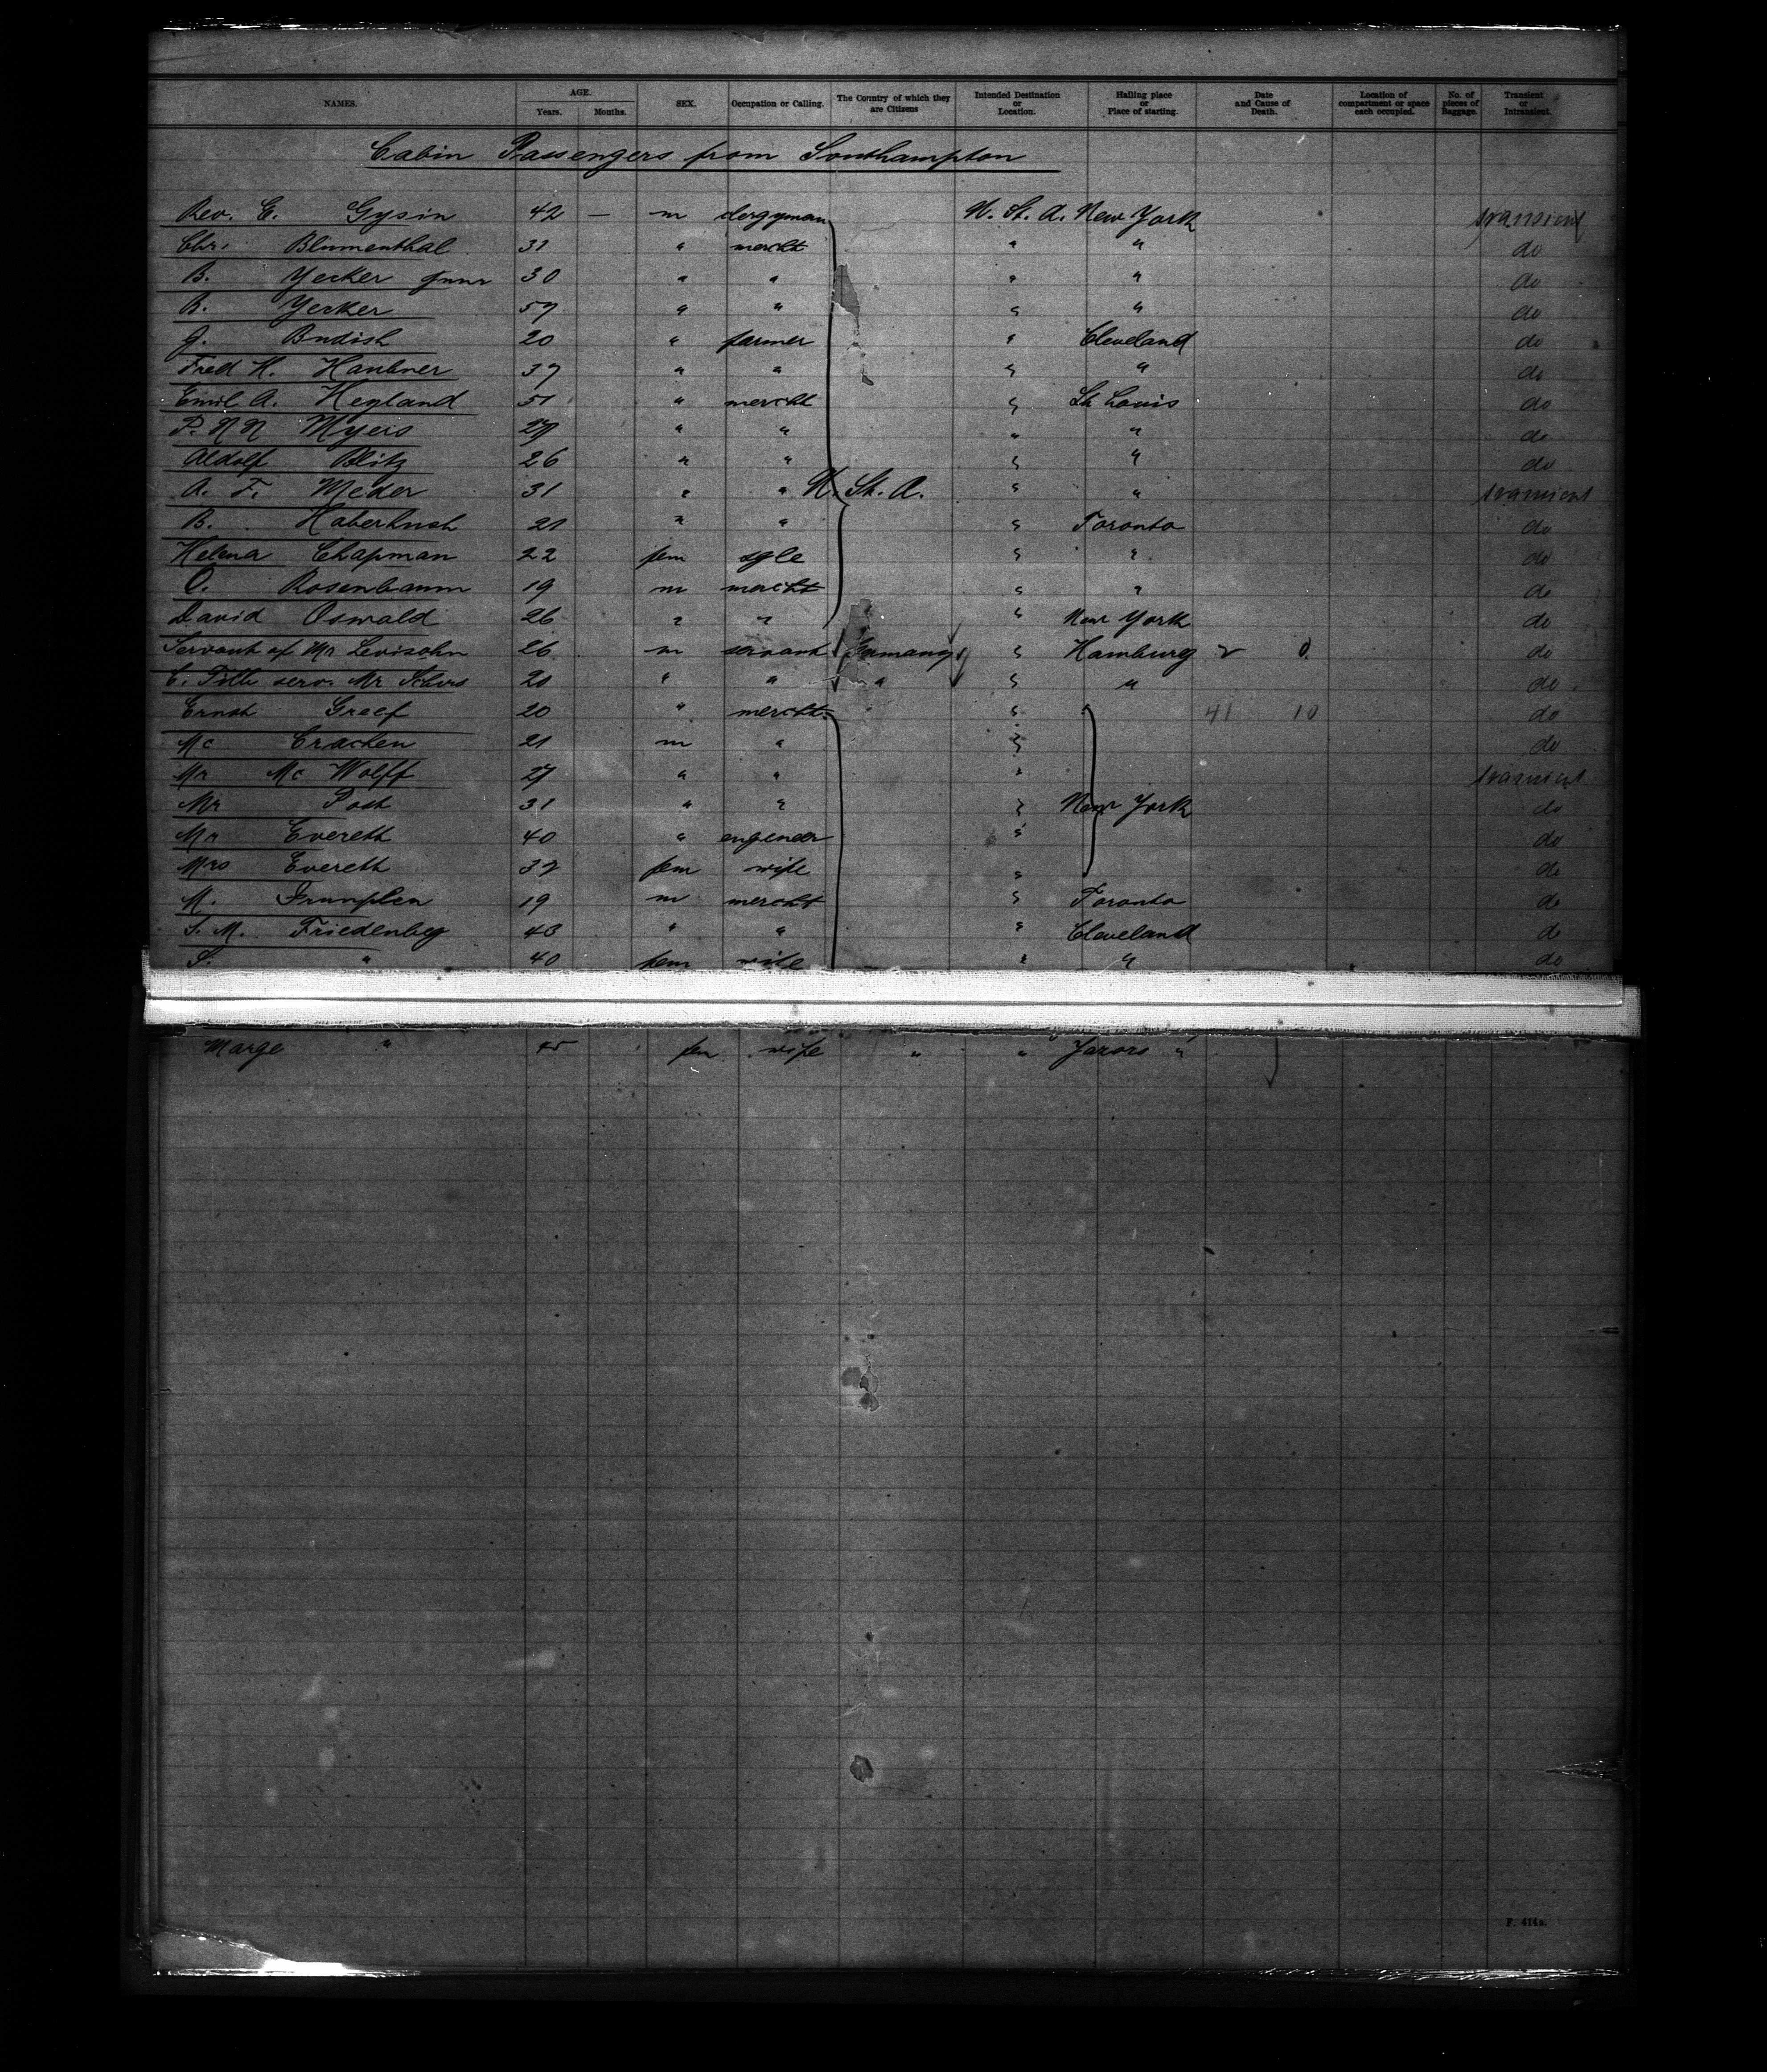 NAMES. AGE. Years. Months. SEX. Occupation or Calling. The Country of which they are Citizens Intended Destination or Location. Hailing place or Place of starting. Date and Cause of Death. Location of compartment or space each occupied. No. of pieces of Baggage. Transient or Intransient.
Cabin Passengers from Southampton
Rev. E. Gysin 42 — m clergyman U. St. A. New York transient
Chr. Blumenthal 31 " mercht " " do
B. Yecker 30 " " " " do
B. Yerker 57 " " " " do
G. Budish 20 " farmer " Cleveland do
Fred H. Haubner 37 " " " " do
Emil A. Heyland 51 " mercht " St Louis do
P. N N Myers 27 " " " " do
Aldolf Blitz 26 " " " " do
A. F. Meder 31 " " U. St. A. " " transient
B. 21 " " " Toronto do
Helena Chapman 22 fem sgle " " do
O. Rosenbaum 19 m mercht " " do
David Oswald 26 " " " New York do
Servant of Mr Levisohn 26 m servant Germany " Hamburg 2 0 do
C. serv. Mr 20 " " " " " do
Ernst Greef 20 " mercht " 41 10 do
Mc Cracken 21 m " " do
Mr Mc Wolff 27 " " " transient
Mr Post 31 " " " New York do
Mr Everett 40 " engeneer " do
Mrs Everett 32 fem wife " do
M. 19 m mercht " Toronto do
S. M. Friedenberg 43 " " " Cleveland do
S. " 40 fem wife " " do
Marge " 45 fem wife " " "
F. 414a.